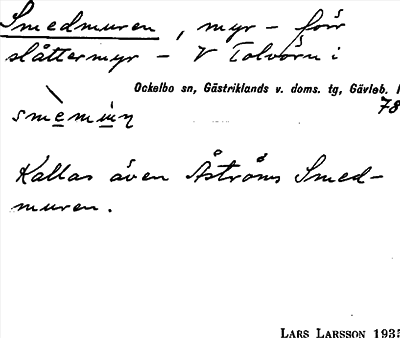 Smedmuren, myr - förr
slåttermyr - V Tolvörn i
Ockelbo sn, Gästriklands v. doms. tg, Gävleb. l
78
Kallas även Åströms Smed-
muren.
LARS LARSSON 1935